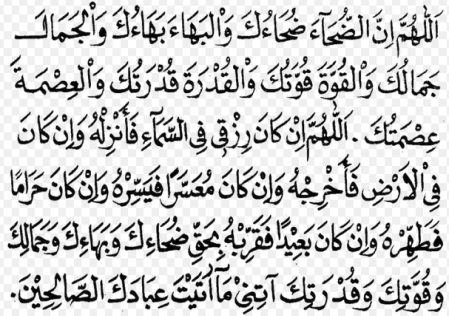 اَللّٰهُمَّ اِنَّ الضُّحَآءَ ضُحَاءُكَ وَالْبَهَاءَ بَهَاءُكَ وَالْجَمَالَ
جَمَالُكَ وَالْقُوَّةَ قُوَّتُكَ وَالْقُدْرَةَ قُدْرَتُكَ وَالْعِصْمَةَ
عِصْمَتُكَ . اَللّٰهُمَّ اِنْ كَانَ رِزْقِى فِى السَّمَآءِ فَأَنْزِلْهُ وَاِنْ كَانَ
فِى الْاَرْضِ فَأَخْرِجْهُ وَاِنْ كَانَ مُعَسَّرًا فَيَسِّرْهُ وَاِنْ كَانَ حَرَامًا
فَطَهِّرْهُ وَاِنْ كَانَ بَعِيْدًا فَقَرِّبْهُ بِحَقِّ ضُحَاءِكَ وَبَهَاءِكَ وَجَمَالِكَ
وَقُوَّتِكَ وَقُدْرَتِكَ آتِنِىْ مَآاٰتَيْتَ عِبَادَكَ الصَّالِحِيْنَ.